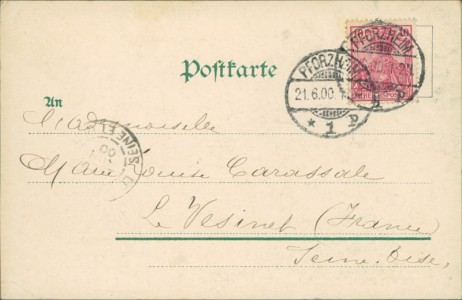 PFORZHEIM
PFORZHEIM
21.6.00.
* 1 P
Postkarte
An
Mademoiselle
SEINE ET
00
Marie Louise Carassale
Le Vesinet (France)
Seine Oise,